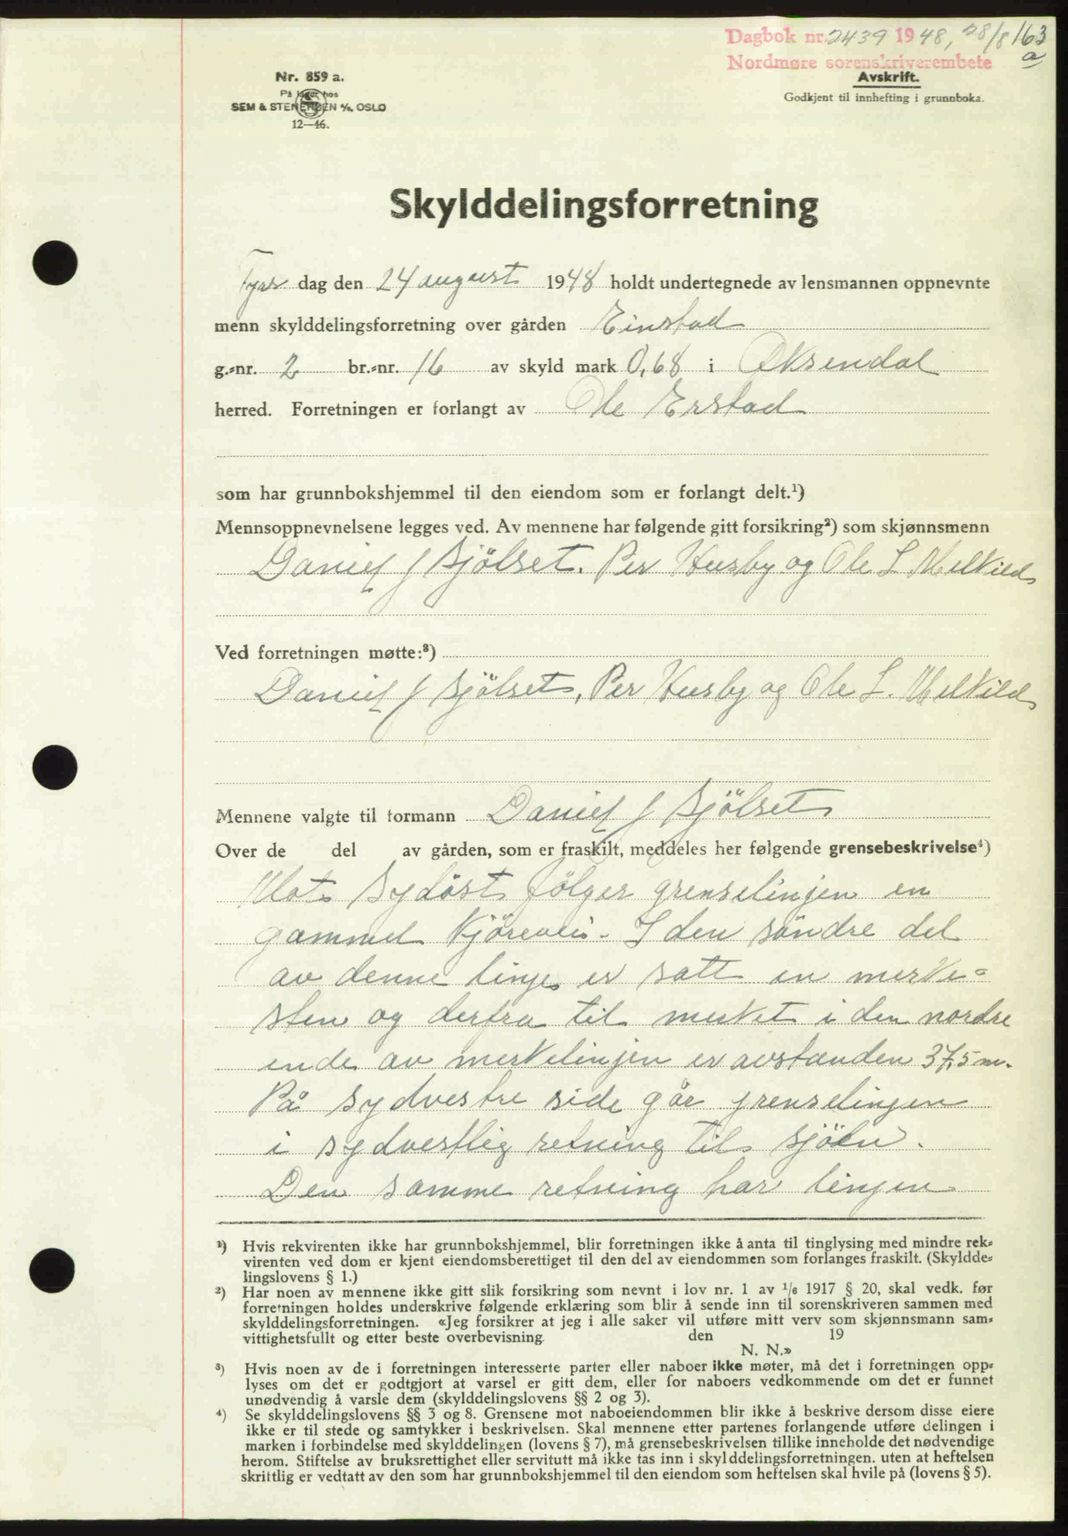 Dagbok nr. 2439 1948, 28/8 163
Nordmøre sorenskriverembete a
Nr. 859 a.
På lager hos
SEM & STENERSEN A/S, OSLO
12—46.
Avskrift.
Godkjent til innhefting i grunnboka.
Skylddelingsforretning
Tysdag den 24 august 1948 holdt undertegnede av lensmannen oppnevnte
menn skylddelingsforretning over gården Einstad
g.-nr. 2 br.-nr. 16 av skyld mark 0,68 i Øksendal
herred. Forretningen er forlangt av Ole Erstad
som har grunnbokshjemmel til den eiendom som er forlangt delt.¹)
Mennsoppnevnelsene legges ved. Av mennene har følgende gitt forsikring²) som skjønnsmenn
Daniel J Sjölset. Per Husby og Ole L Melkild
Ved forretningen møtte:³)
Daniel J Sjölset, Per Husby og Ole L. Melkild
Mennene valgte til formann Daniel J Sjölset
Over de del av gården, som er fraskilt, meddeles her følgende grensebeskrivelse⁴)
Mot sydöst fölger grenselinjen en
gammel kjörevei. I den söndre del
av denne linje er satt en merke-
sten og derfra til merket i den nordre
ende av merkelinjen er avstanden 37,5 m.
På sydvestre side går grenselinjen
i sydvestlig retning til sjöen.
Den samme retning har linjen
¹) Hvis rekvirenten ikke har grunnbokshjemmel, blir forretningen ikke å anta til tinglysing med mindre rek-
virenten ved dom er kjent eiendomsberettiget til den del av eiendommen som forlanges fraskilt. (Skyldde-
lingslovens § 1.)
²) Har noen av mennene ikke gitt slik forsikring som nevnt i lov nr. 1 av 1/6 1917 § 20, skal vedk. før
forretningen holdes underskrive følgende erklæring som blir å sende inn til sorenskriveren sammen med
skylddelingsforretningen. «Jeg forsikrer at jeg i alle saker vil utføre mitt verv som skjønnsmann sam-
vittighetsfullt og etter beste overbevisning. den 19
N. N.»
³) Hvis noen av de i forretningen interesserte parter eller naboer ikke møter, må det i forretningen opp-
lyses om det er godtgjort at varsel er gitt dem, eller for naboers vedkommende om det er funnet
unødvendig å varsle dem (skylddelingslovens §§ 2 og 3).
⁴) Se skylddelingslovens §§ 3 og 8. Grensene mot naboeiendommen blir ikke å beskrive dersom disse eiere
ikke er til stede og samtykker i beskrivelsen. Skal mennene etter partenes forlangende utføre delingen i
marken i forbindelse med skylddelingen (lovens § 7), må grensebeskrivelsen tillike inneholde det nødvendige
herom. Stiftelse av bruksrettighet eller servitutt må ikke tas inn i skylddelingsforretningen. uten at heftelsen
skriftlig er vedtatt av den som har grunnbokshjemmel til den eiendom som heftelsen skal hvile på (lovens § 5).